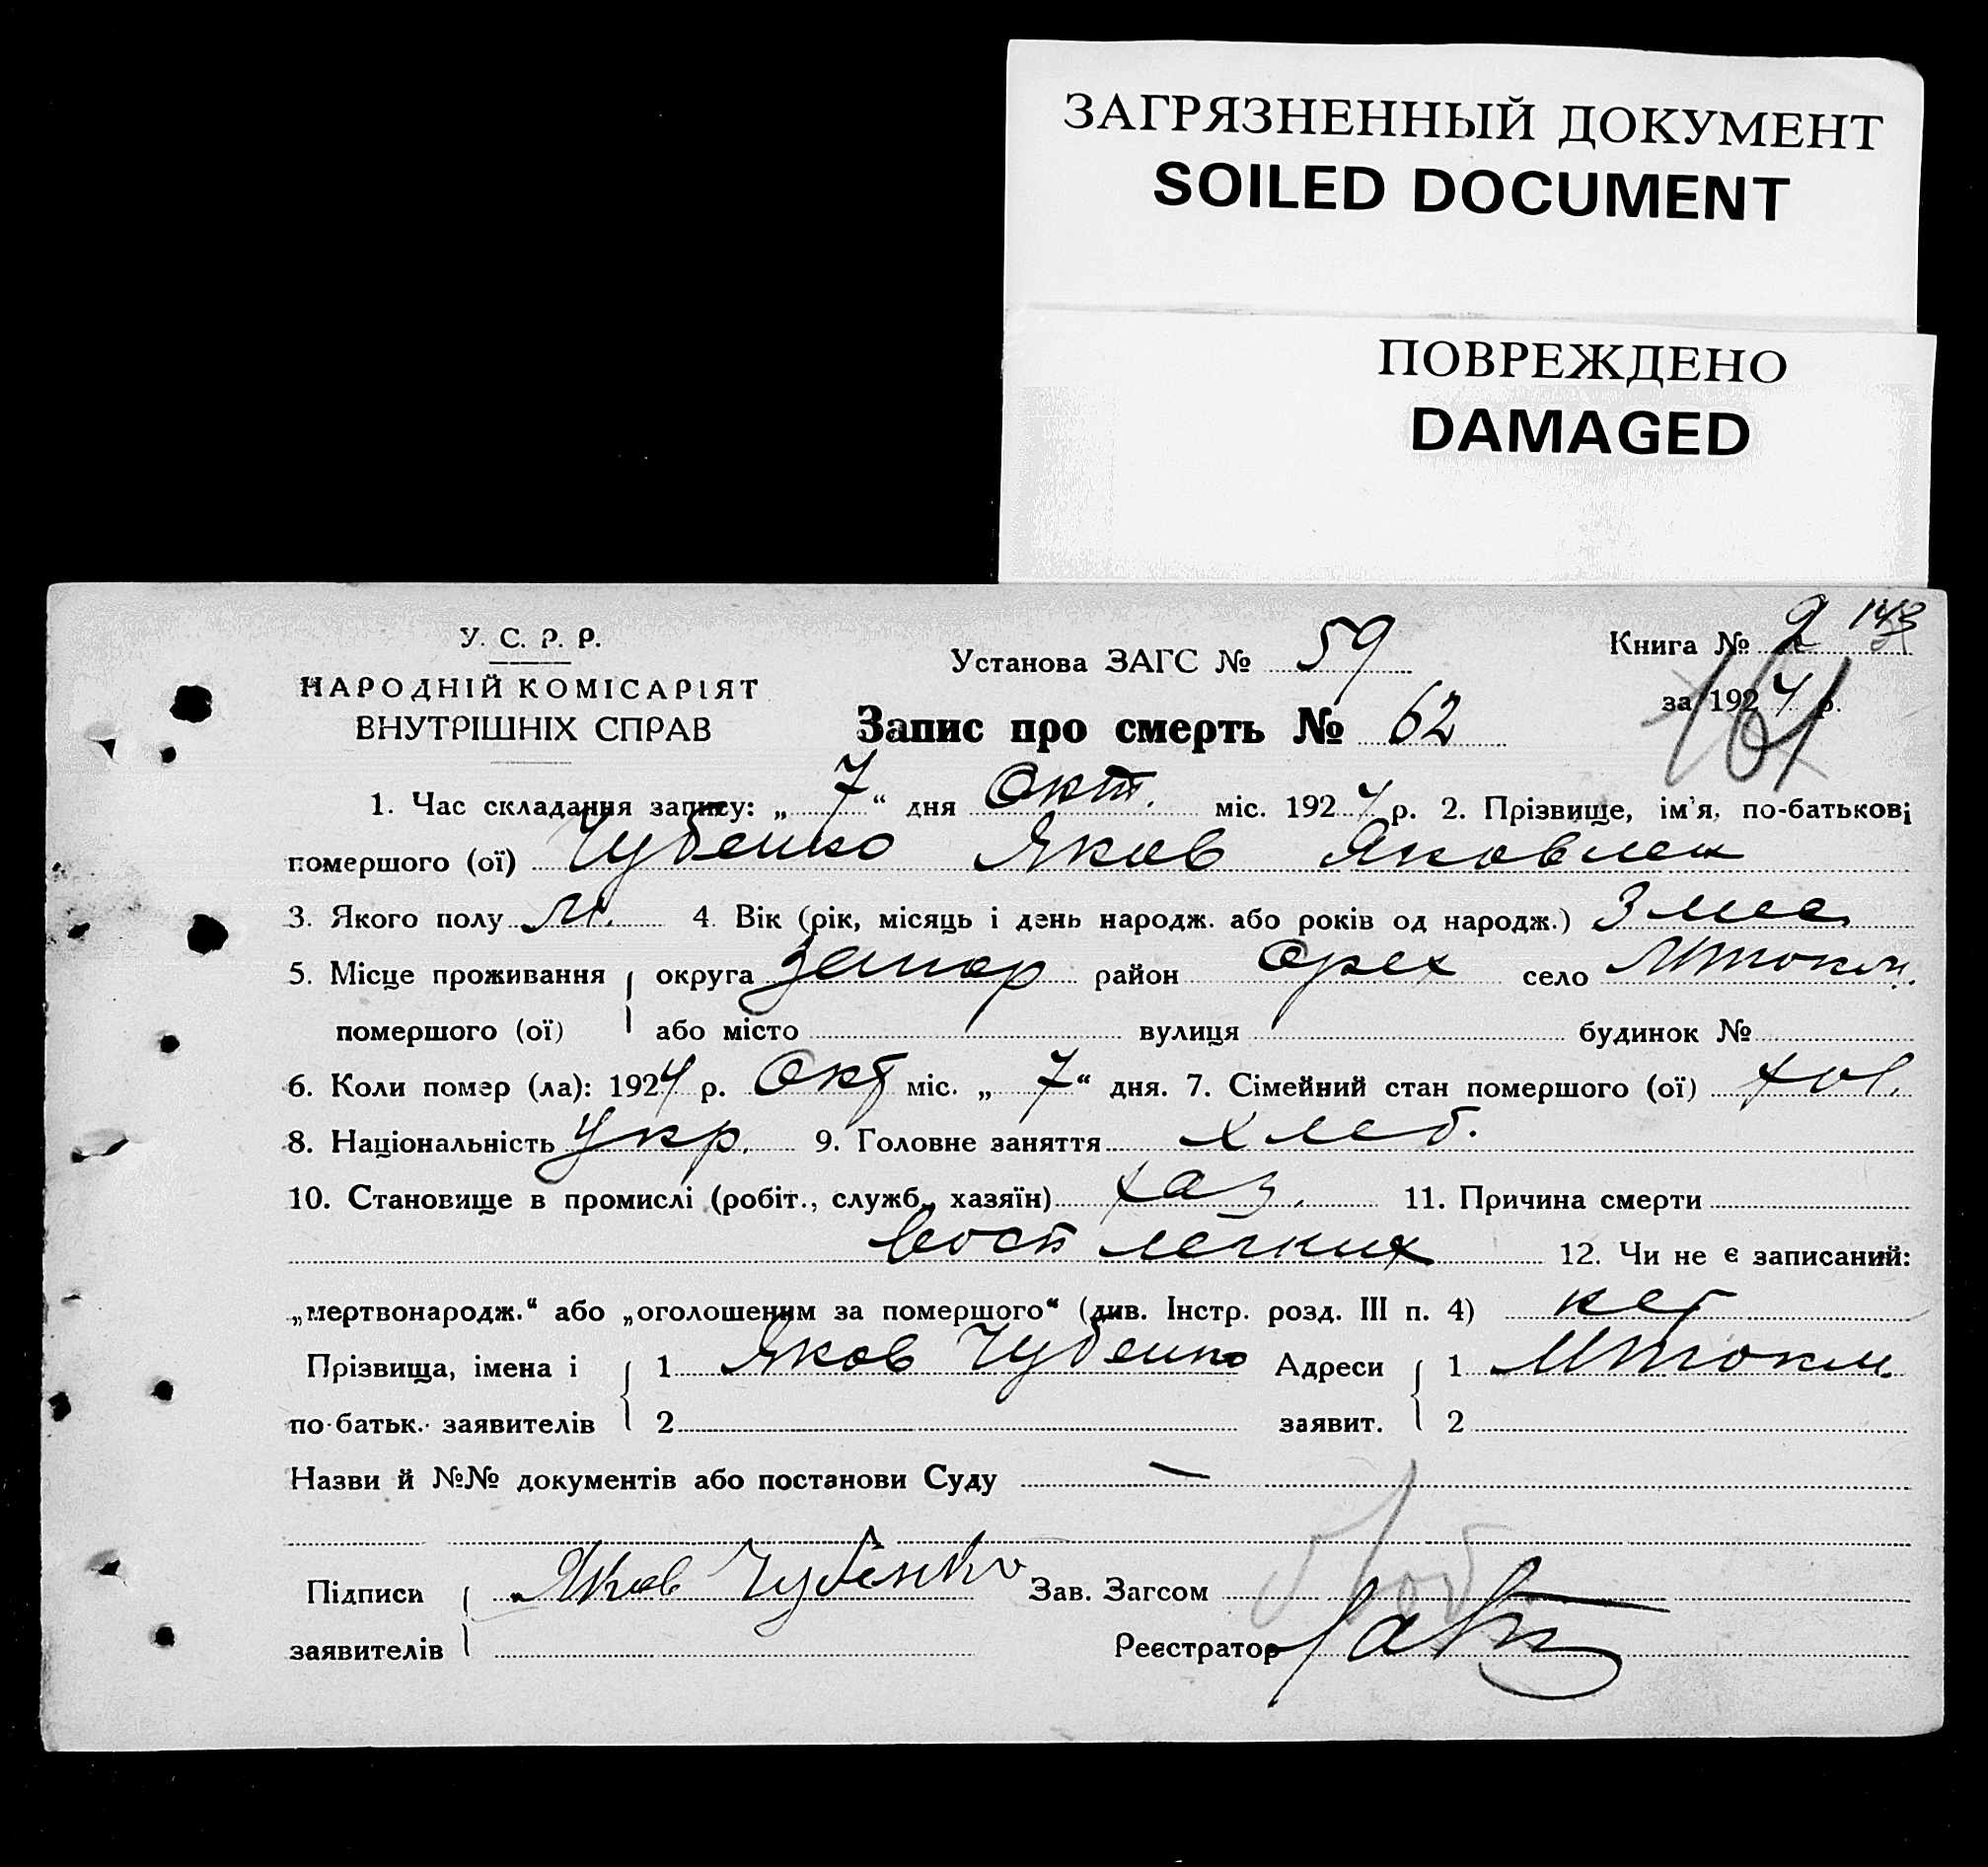 ЗАГРЯЗНЕННЫЙ ДОКУМЕНТ
SOILED DOCUMENT
ПОВРЕЖДЕНО
DAMAGED
У. С. Р. Р.
НАРОДНІЙ КОМІСАРІЯТ
ВНУТРІШНІХ СПРАВ
Установа ЗАГС № 59
Запис про смерть № 62
Книга № 2 143
за 1924 р.
161
1. Час складання запису: „7“ дня Окт. міс. 1924 р. 2. Прізвище, ім'я, по-батькові
помершого (ої) Чубенко Яков Яковлев
3. Якого полу м. 4. Вік (рік, місяць і день народж. або років од народж.) 3 мес.
5. Місце проживання округа Запор район Орех село
помершого (ої) або місто вулиця будинок №
6. Коли помер (ла): 1924 р. Окт міс. „7“ дня. 7. Сімейний стан помершого (ої) хол.
8. Національність Укр. 9. Головне заняття хлеб.
10. Становище в промислі (робіт., служб., хазяїн) хаз. 11. Причина смерти
восп легких 12. Чи не є записаний:
„мертвонародж.“ або „оголошеним за помершого“ (див. Інстр. розд. III п. 4) нет
Прізвища, імена і 1 Яков Чубенко Адреси 1
по-батьк. заявителів 2 заявит. 2
Назви й №№ документів або постанови Суду —
Підписи Яков Чубенко Зав. Загсом
заявителів Реєстратор